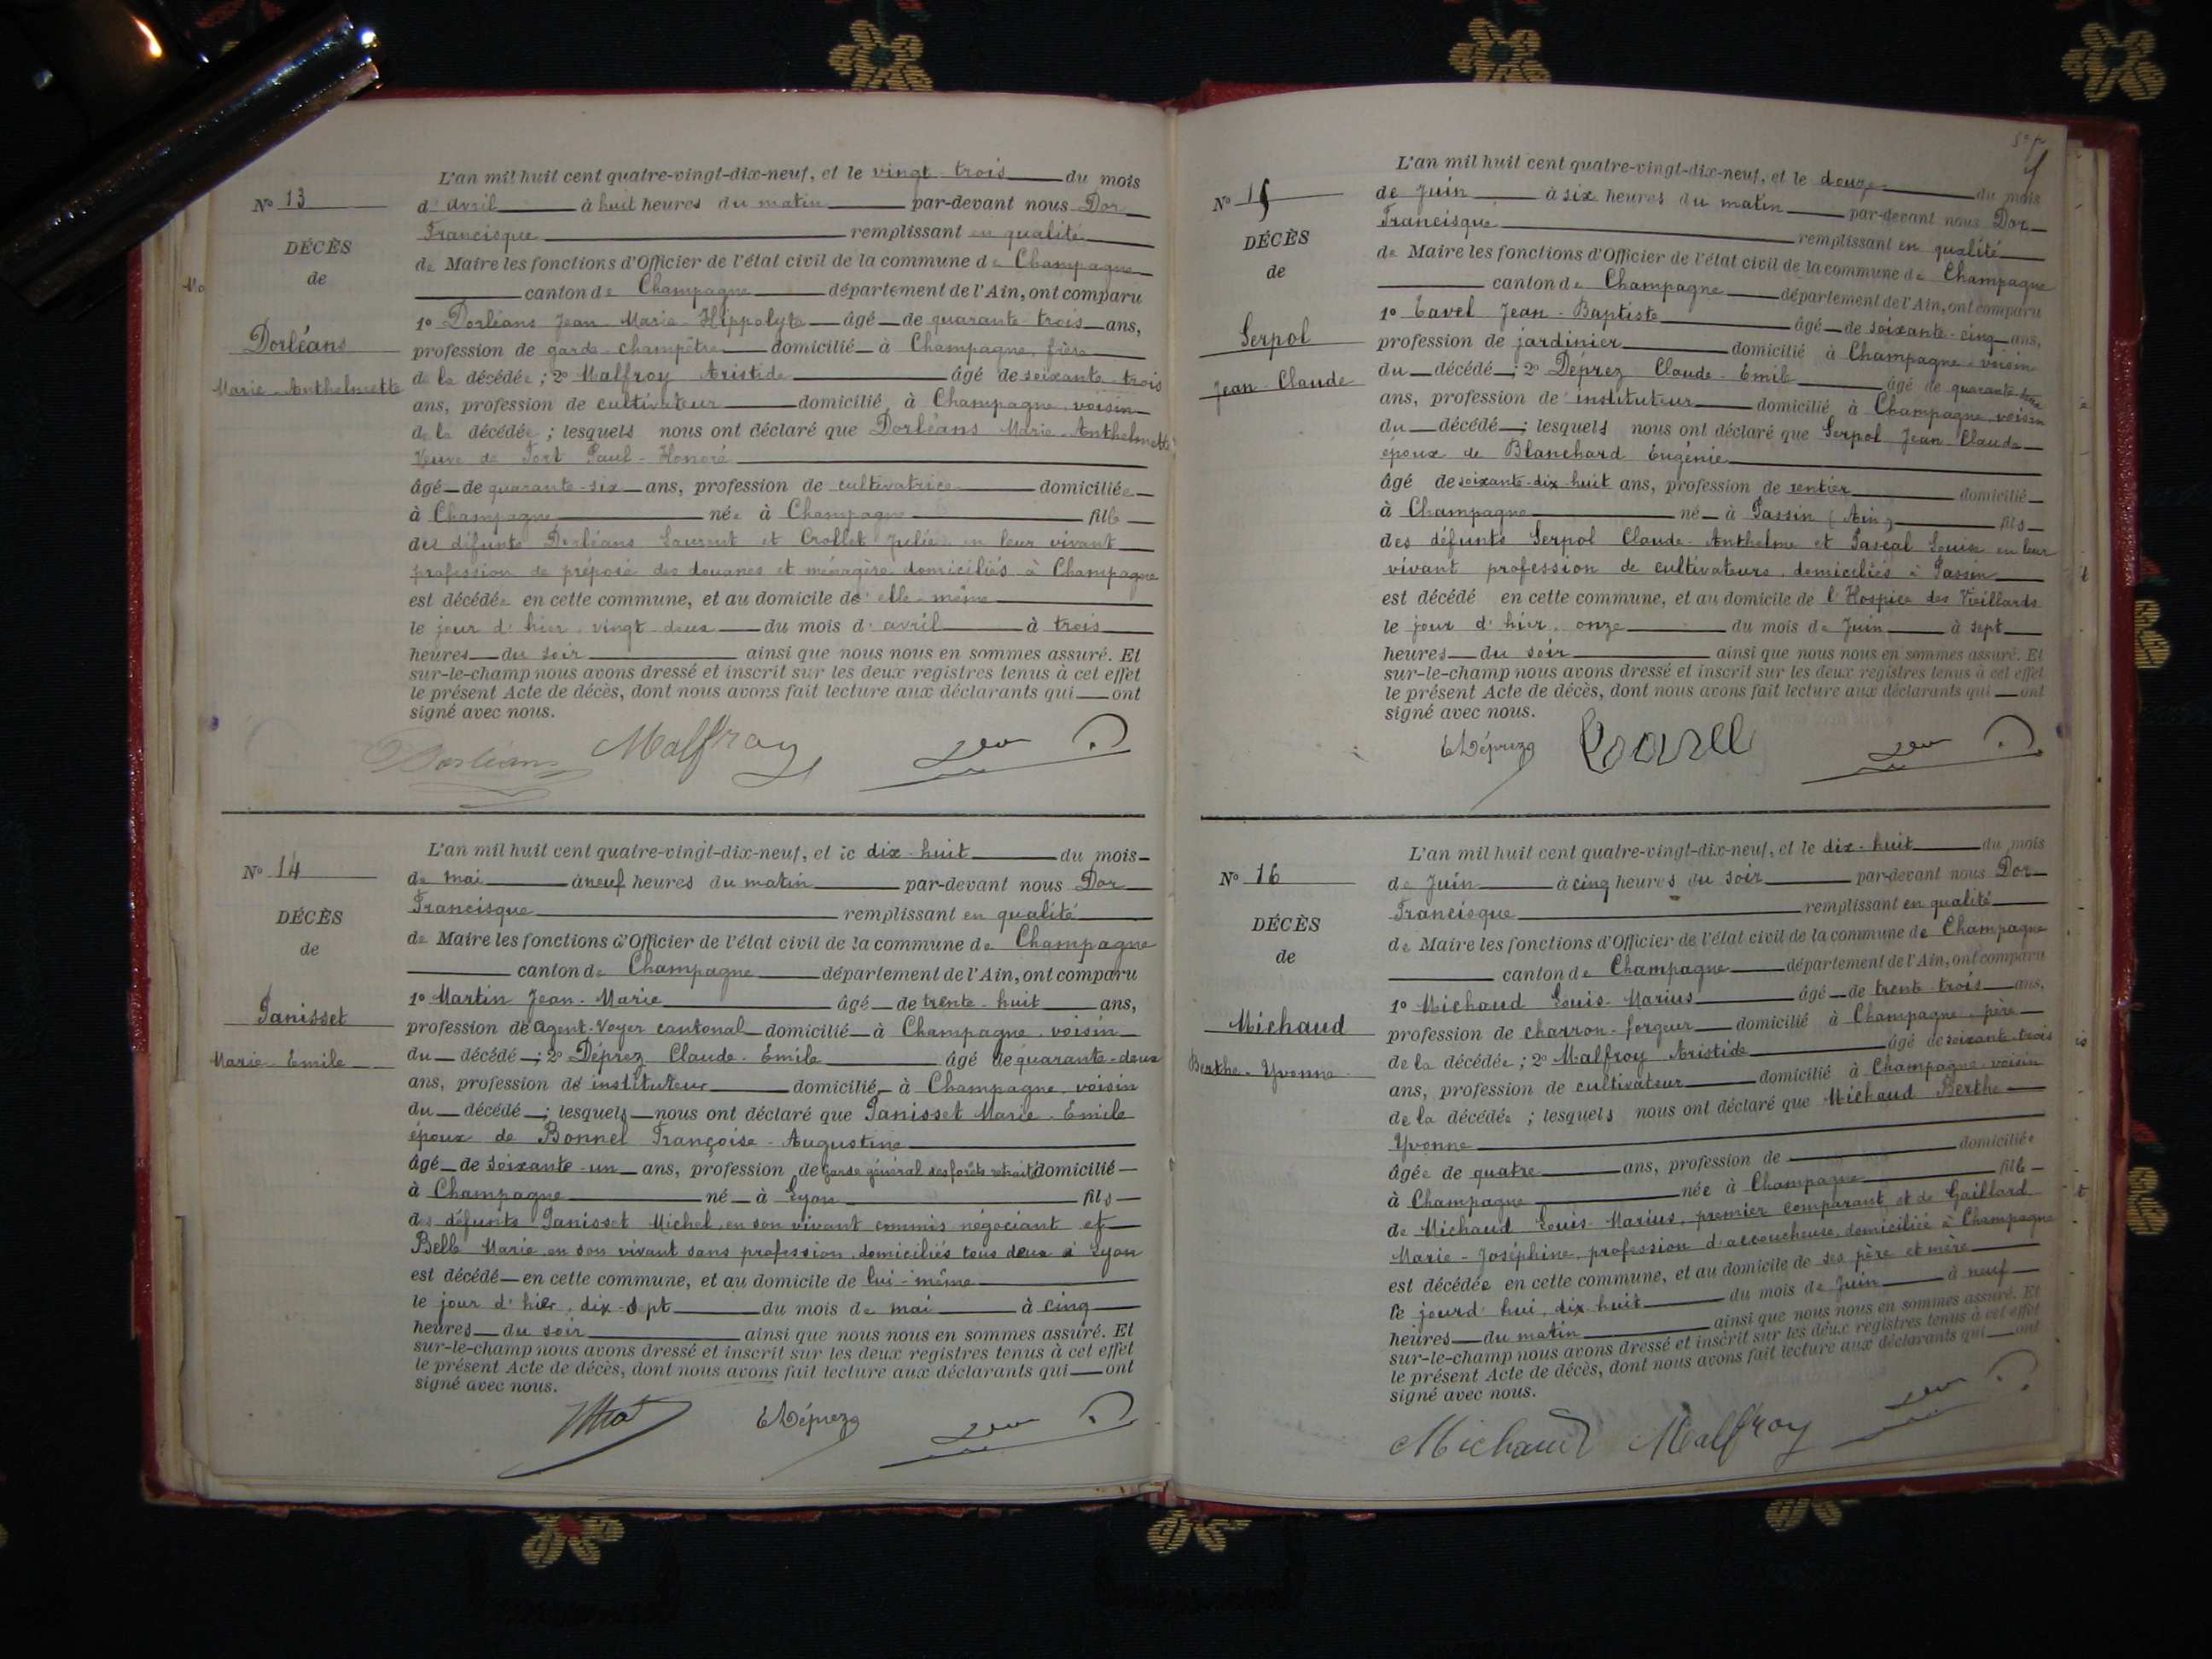 N° 13
DÉCÈS
de
Dorléans
Marie-Anthelmette
L'an mil huit cent quatre-vingt-dix-neuf, et le vingt-trois du mois
d'avril à huit heures du matin par-devant nous Dor
Francisque remplissant en qualité
de Maire les fonctions d'Officier de l'état civil de la commune de Champagne
canton de Champagne département de l'Ain, ont comparu
1° Dorléans Jean-Marie-Hippolyte âgé de quarante-trois ans,
profession de garde-champêtre domicilié à Champagne, frère
de la décédée ; 2° Malfroy Aristide âgé de soixante-trois
ans, profession de cultivateur domicilié à Champagne, voisin
de la décédée ; lesquels nous ont déclaré que Dorléans Marie-Anthelmette
Veuve de Fort Paul-Honoré
âgé de quarante-six ans, profession de cultivatrice domiciliée
à Champagne née à Champagne fille
des défunts Dorléans Laurent et Crollet Julie en leur vivant
profession de préposé des douanes et ménagère domiciliés à Champagne
est décédée en cette commune, et au domicile de elle-même
le jour d'hier, vingt-deux du mois d'avril à trois
heures du soir ainsi que nous nous en sommes assuré. Et
sur-le-champ nous avons dressé et inscrit sur les deux registres tenus à cet effet
le présent Acte de décès, dont nous avons fait lecture aux déclarants qui ont
signé avec nous.
Dorléans Malfroy
N° 14
DÉCÈS
de
Janisset
Marie-Emile
L'an mil huit cent quatre-vingt-dix-neuf, et le dix-huit du mois
de mai à neuf heures du matin par-devant nous Dor
Francisque remplissant en qualité
de Maire les fonctions d'Officier de l'état civil de la commune de Champagne
canton de Champagne département de l'Ain, ont comparu
1° Martin Jean-Marie âgé de trente-huit ans,
profession de agent-Voyer cantonal domicilié à Champagne, voisin
du décédé ; 2° Déprez Claude-Émile âgé de quarante-deux
ans, profession de instituteur domicilié à Champagne, voisin
du décédé ; lesquels nous ont déclaré que Janisset Marie-Émile
époux de Bonnel Françoise-Augustine
âgé de soixante-un ans, profession de garde général des forêts retraité domicilié
à Champagne né à Lyon fils
des défunts Janisset Michel, en son vivant commis négociant et
Belle Marie en son vivant sans profession, domiciliés tous deux à Lyon
est décédé en cette commune, et au domicile de lui-même
le jour d'hier, dix-sept du mois de mai à cinq
heures du soir ainsi que nous nous en sommes assuré. Et
sur-le-champ nous avons dressé et inscrit sur les deux registres tenus à cet effet
le présent Acte de décès, dont nous avons fait lecture aux déclarants qui ont
signé avec nous.
EDéprez
N° 15
DÉCÈS
de
Serpol
Jean-Claude
L'an mil huit cent quatre-vingt-dix-neuf, et le douze du mois
de Juin à six heures du matin par-devant nous Dor
Francisque remplissant en qualité
de Maire les fonctions d'Officier de l'état civil de la commune de Champagne
canton de Champagne département de l'Ain, ont comparu
1° Tavel Jean-Baptiste âgé de soixante-cinq ans,
profession de jardinier domicilié à Champagne, voisin
du décédé ; 2° Déprez Claude-Emile âgé de quarante-deux
ans, profession de instituteur domicilié à Champagne, voisin
du décédé ; lesquels nous ont déclaré que Serpol Jean Claude
époux de Blanchard Eugénie
âgé de soixante-dix-huit ans, profession de rentier domicilié
à Champagne né à Passin (Ain) fils
des défunts Serpol Claude-Anthelme et Pascal Louise en leur
vivant profession de cultivateurs, domiciliés à Passin
est décédé en cette commune, et au domicile de l'Hospice des Vieillards
le jour d'hier, onze du mois de Juin à sept
heures du soir ainsi que nous nous en sommes assuré. Et
sur-le-champ nous avons dressé et inscrit sur les deux registres tenus à cet effet
le présent Acte de décès, dont nous avons fait lecture aux déclarants qui ont
signé avec nous.
EDéprez Tavel
N° 16
DÉCÈS
de
Michaud
Berthe-Yvonne
L'an mil huit cent quatre-vingt-dix-neuf, et le dix-huit du mois
de Juin à cinq heures du soir par-devant nous Dor
Francisque remplissant en qualité
de Maire les fonctions d'Officier de l'état civil de la commune de Champagne
canton de Champagne département de l'Ain, ont comparu
1° Michaud Louis-Marius âgé de trente-trois ans,
profession de charron-forgeur domicilié à Champagne, père
de la décédée ; 2° Malfroy Aristide âgé de soixante-trois
ans, profession de cultivateur domicilié à Champagne, voisin
de la décédée ; lesquels nous ont déclaré que Michaud Berthe
Yvonne
âgée de quatre ans, profession de domiciliée
à Champagne née à Champagne fille
de Michaud Louis-Marius, premier comparant et de Gaillard
Marie-Joséphine, profession d'accoucheuse, domiciliée à Champagne
est décédée en cette commune, et au domicile de ses père et mère
le jourd'hui, dix-huit du mois de Juin à neuf
heures du matin ainsi que nous nous en sommes assuré. Et
sur-le-champ nous avons dressé et inscrit sur les deux registres tenus à cet effet
le présent Acte de décès, dont nous avons fait lecture aux déclarants qui ont
signé avec nous.
Michaud Malfroy